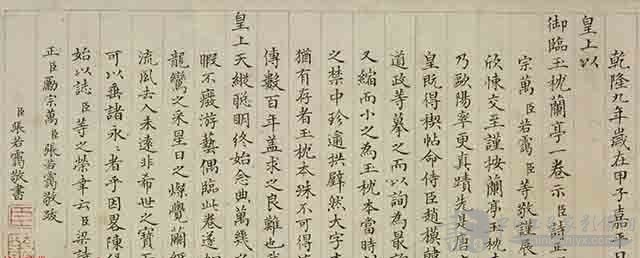 乾隆九年歲在甲子嘉平月
皇上以
御臨玉枕蘭亭一卷示臣
宗萬臣若靄臣等敬謹展
欣悚交至謹按蘭亭玉枕本
乃歐陽率更真蹟先是唐
皇既得稧帖命侍臣趙模韓
道政等摹之而以詢為最
又縮而小之為玉枕本當時
之禁中珍逾拱璧然大字
猶有存者玉枕本殊不可得
傳數百年蓋求之良難也
皇上天縱聰明終始念典萬幾
暇不廢游藝偶臨此卷遂如
龍鸞之采星日之燦覺繭
流風去人未遠非希世之寶
可以垂諸永永者乎因畧陳
始以誌臣等之榮幸云臣梁詩
正臣勵宗萬臣張若靄敬跋
臣張若靄敬書